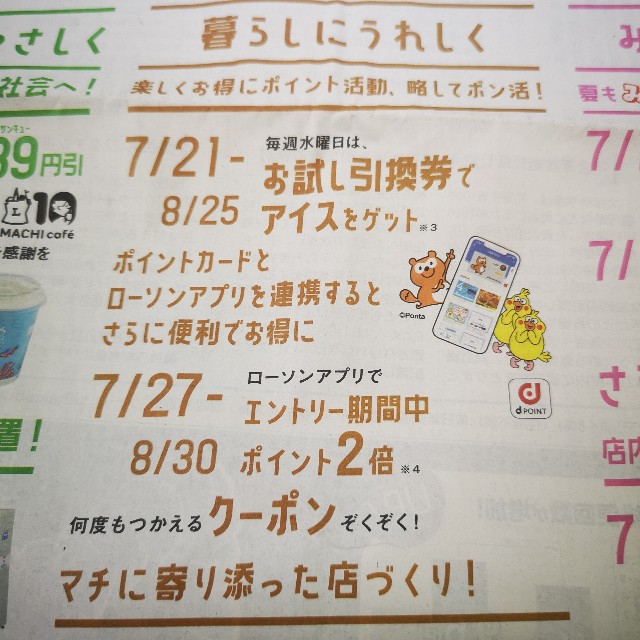 さしく
暮らしにうれしく
み
社会へ!
楽しくお得にポイント活動、略してポン活!
夏も
サンキュー
39円引
7/21-
8/25
毎週水曜日は、
お試し引換券で
アイスをゲット※3
7/
10
MACHI café
感謝を
ポイントカードと
ローソンアプリを連携すると
さらに便利でお得に
7/
©Ponta
d POINT
7/27-
8/30
ローソンアプリで
エントリー期間中
ポイント2倍※4
さ
置!
店内
何度もつかえるクーポンぞくぞく!
7
マチに寄り添った店づくり!